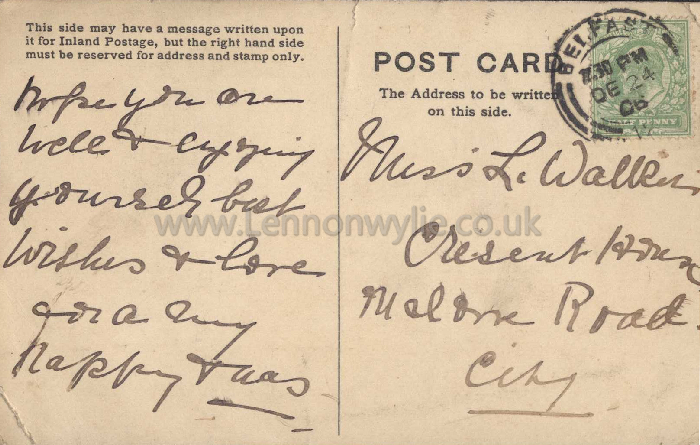 This side may have a message written upon
it for Inland Postage, but the right hand side
must be reserved for address and stamp only.
Hope you are
well & enjoying
yourself best
wishes & love
for a
Happy Xmas
POST CARD
The Address to be written
on this side.
BELFAST
7.30 PM
DE 24
06
HALF PENNY
Miss L. Walker
Cresent House
Malone Road
City
www.Lennonwylie.co.uk